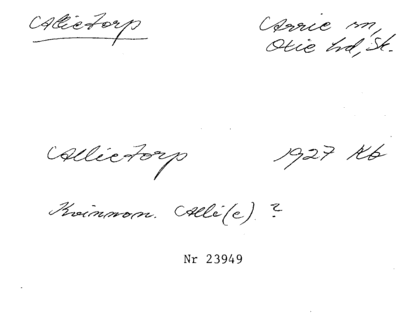 Allietorp Arrie sn,
Oxie hd, Sk.
Allietorp 1927 Kb
Kvinnon. Alli(e)?
Nr 23949